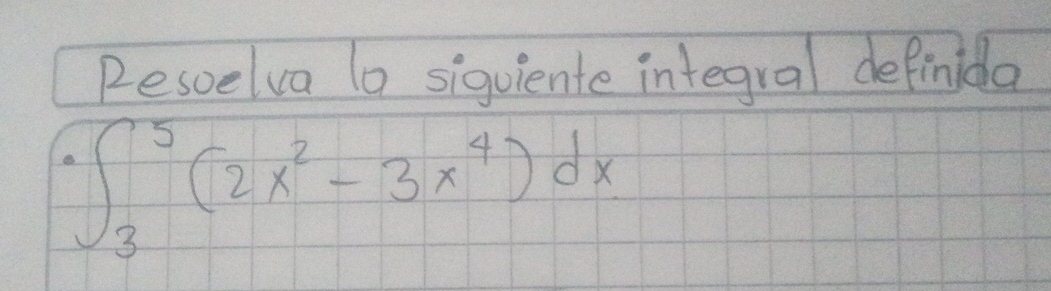 Resuelva la siguiente integral definida
• ∫₃⁵ (2x² - 3x⁴) dx